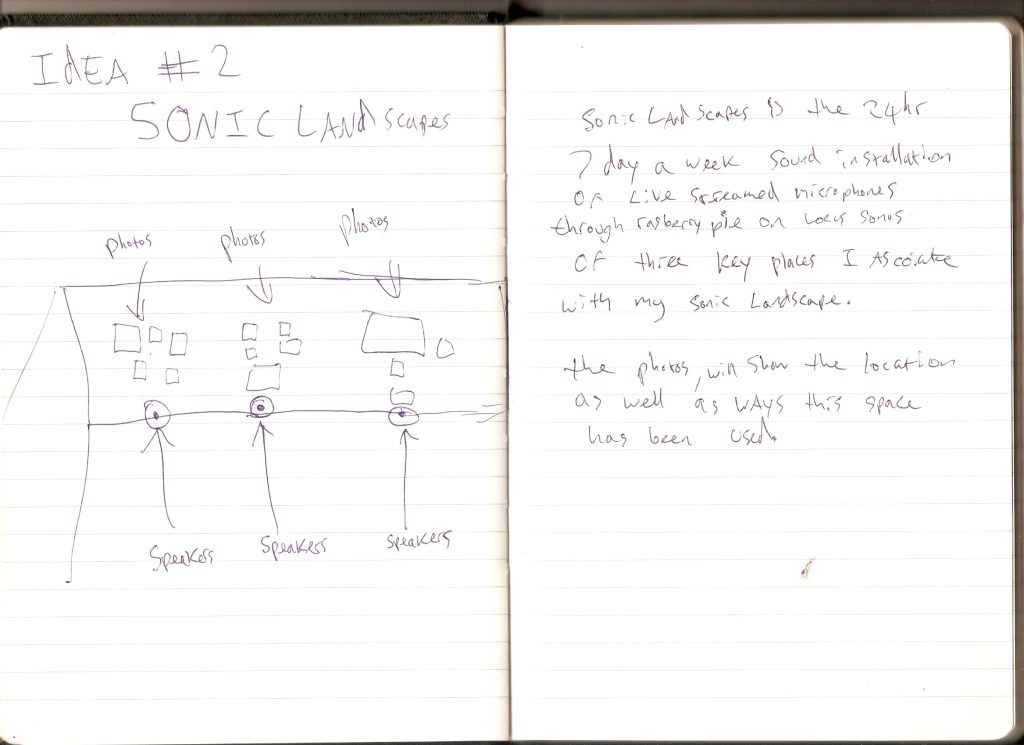 IdEA #2
SONIC LANdscapes
photos
photos
photos
Speakers
Speakers
Speakers
Sonic LANdscapes is the 24hr
7 day a week sound installation
OF Live streamed microphones
through rasberry pie on Locus Sonus
OF three key places I
with my sonic Landscape.
the photos, will show the location
as well as WAYS this space
has been used.